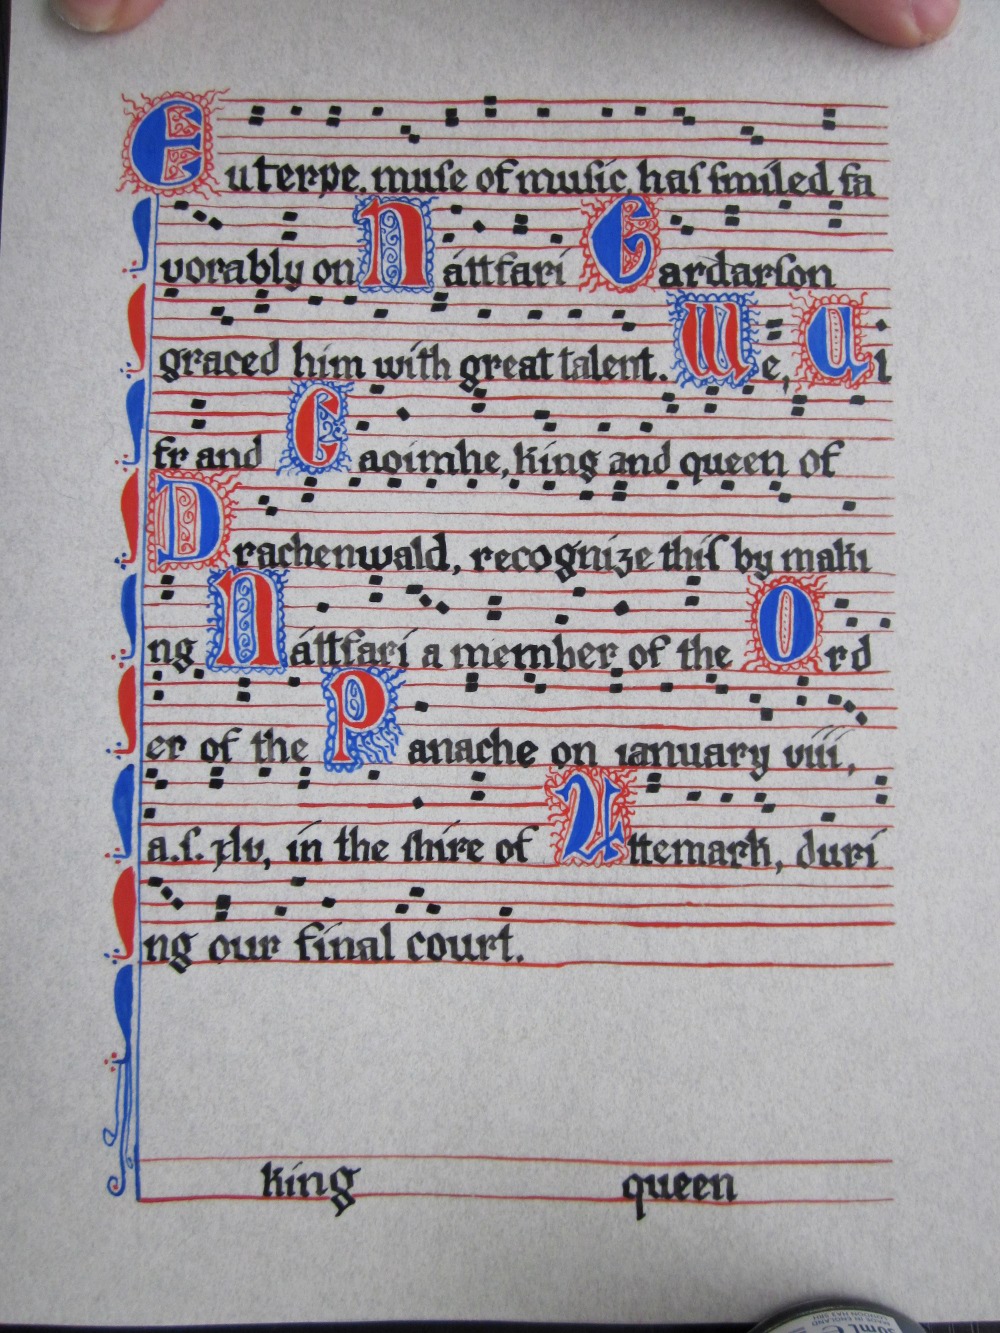 Euterpe, muſe of muſic, haſ ſmiled fa
vorably on Náttfari Gardarſon
graced him with great talent. We, Ul
fr and Caoimhe, king and queen of
Drachenwald, recognize thiſ by maki
ng Náttfari a member of the Ord
er of the Panache on ianuary viii,
a.ſ. xlv, in the ſhire of Attemark, duri
ng our final court.
king queen
MADE IN ENGLAND